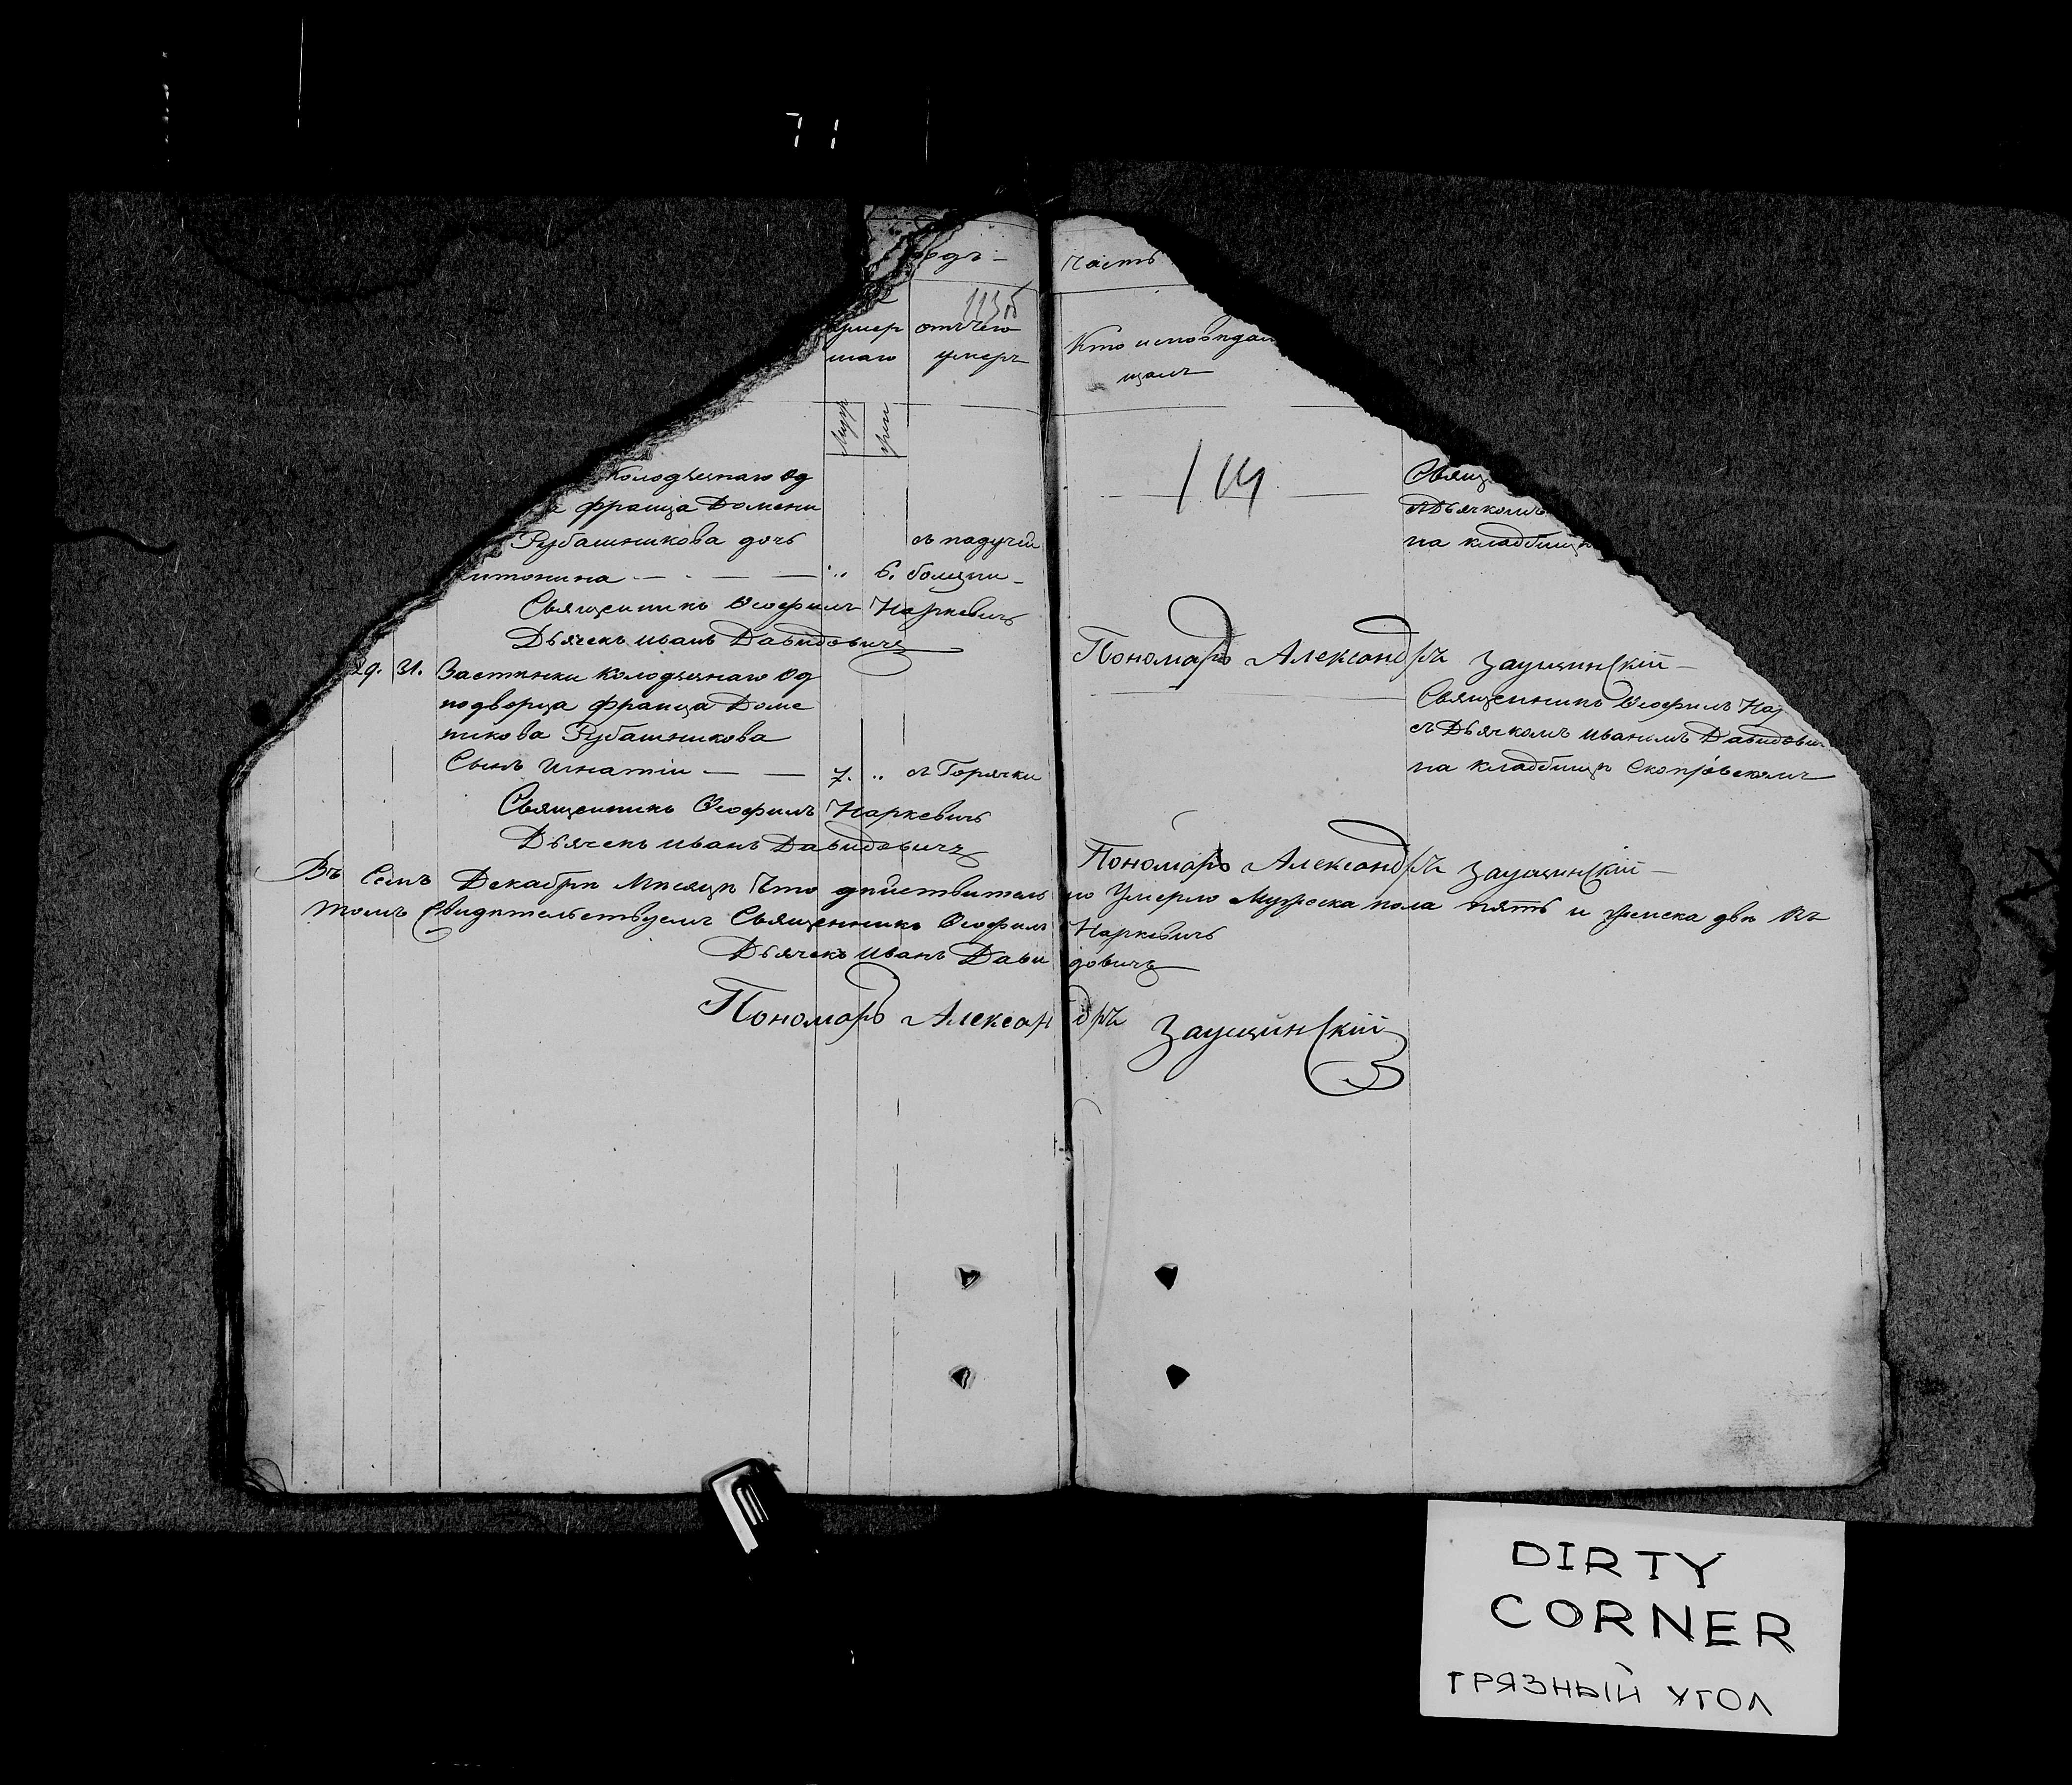 71
часть
113б
умер
шаго
отъ чего
умеръ
Кто исповѣдал
щалъ
Муж
жен
114
Колодезнаго Од
Франца Домени
Рубашникова дочь
нтонина — — — „ 6.
съ падучей
болѣзни
Свящ
съ Дьячкомъ
на кладбищѣ
Священникъ Ѳеофилъ Наркевичъ
Дьячекъ Иванъ Давидовичъ
Пономарь Александръ Заущинскій
29. 31. Застѣнка Колодезнаго Од
нодворца Франца Доме
никова Рубашникова
Сынъ Игнатій — — 7. „ съ Горячки
Священникъ Ѳеофилъ Нар
съ Дьячкомъ Иваномъ Давидови
на кладбищѣ Скопровскомъ
Священникъ Ѳеофилъ Наркевичъ
Дьячекъ Иванъ Давидовичъ
Пономарь Александръ Заущинскій
Въ Семъ Декабрѣ Мѣсяцѣ Что дѣйствительно Умерло Мужеска пола пять и женска двѣ Въ
томъ Свидѣтельствуемъ Священникъ Ѳеофилъ Наркевичъ
Дьячекъ Иванъ Давидовичъ
Пономарь Александръ Заущинскій
DIRTY
CORNER
ГРЯЗНЫЙ УГОЛ